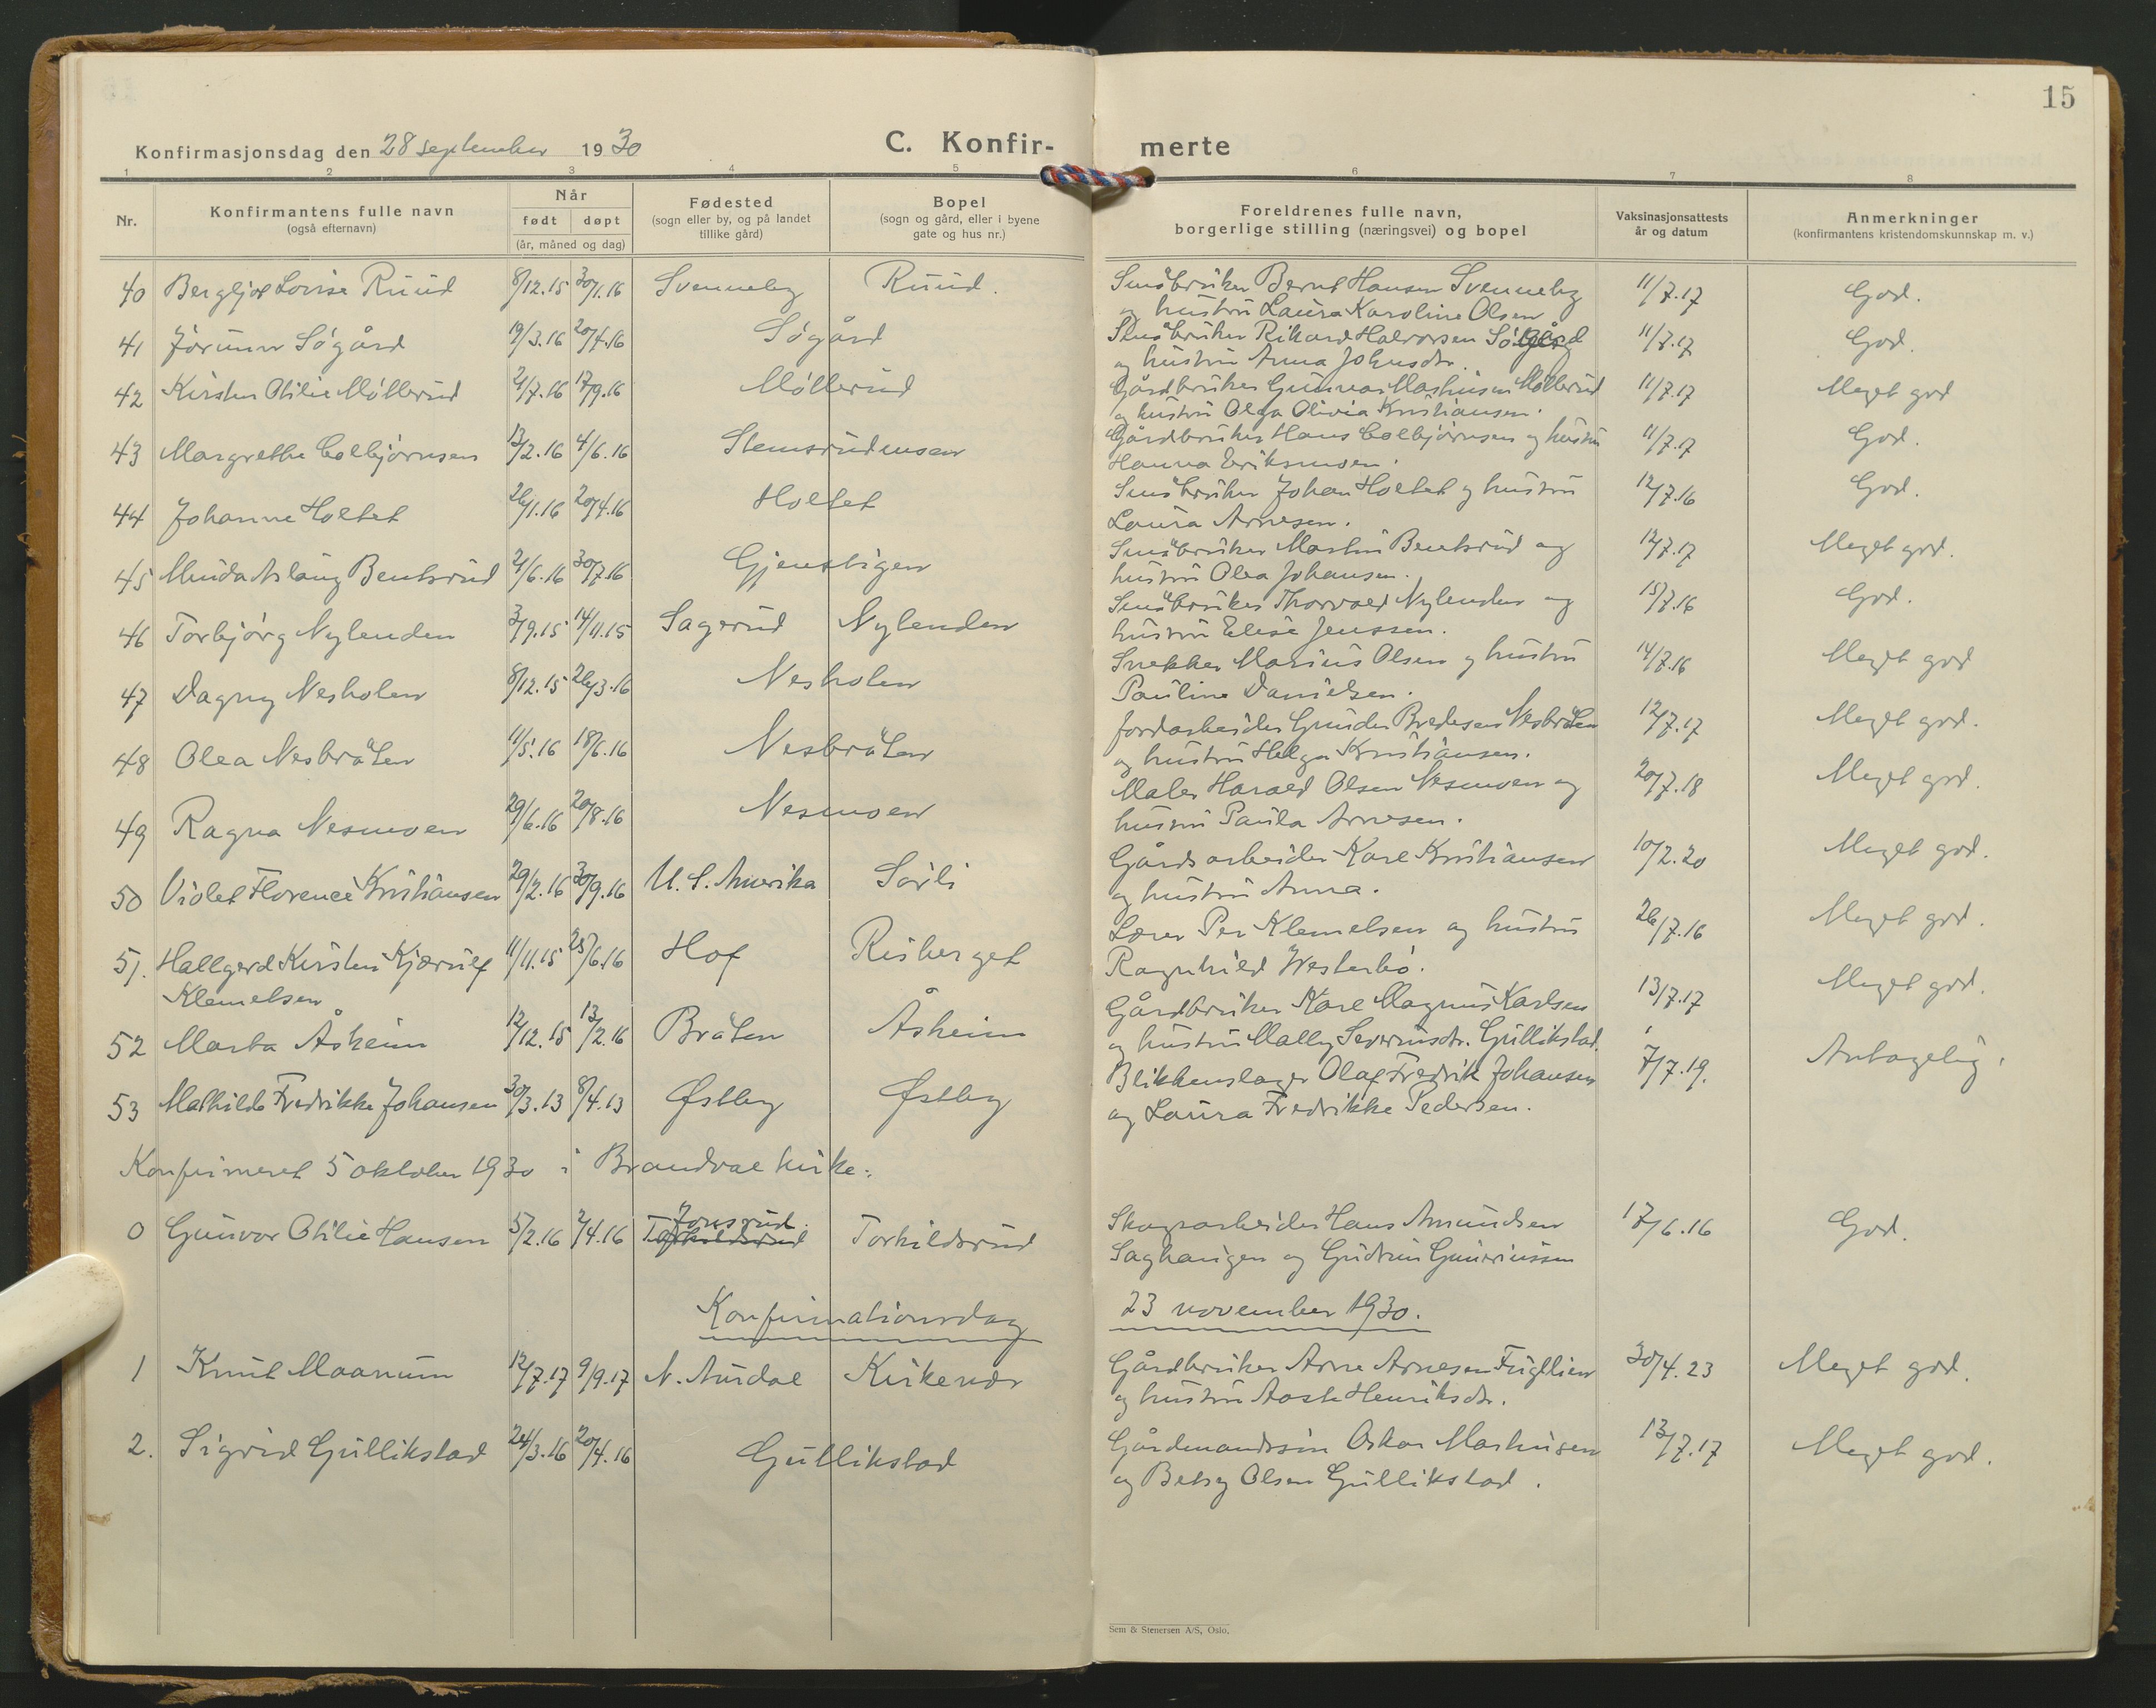 15
Konfirmasjonsdag den 28 september 1930
C. Konfir-merte
1 2 3 4 5 6 7 8
Nr. Konfirmantens fulle navn (også efternavn) Når født døpt (år, måned og dag) Fødested (sogn eller by, og på landet tillike gård) Bopel (sogn og gård, eller i byene gate og hus nr.) Foreldrenes fulle navn, borgerlige stilling (næringsvei) og bopel Vaksinasjonsattests år og datum Anmerkninger (konfirmantens kristendomskunnskap m. v.)
40 Bergljot Lovise Ruud 8/12.15 30/1.16 Svenneby Ruud. Småbruker Bernt Hansen Svenneby 11/7.17 God.
og hustru Laura Karoline Olsen
41 Jørunn Søgård 19/3.16 20/4.16 Søgård Småbruker Rikard Halvorsen Søgård 11/7.17 God.
og hustru Anna Johnsdtr.
42 Kirsten Otilie Møllerud 4/7.16 17/9.16 Møllerud Gårdbruker Gunnar Mathisen Møllerud 11/7.17 Meget god
og hustru Olga Olivia Kristiansen.
43 Margrethe Colbjørnsen 13/2.16 4/6.16 Stemsrudmoen Gårdbruker Hans Colbjørnsen og hustru 11/7.17 God.
Hanna Eriksmoen.
44 Johanne Holtet 26/1.16 20/4.16 Holtet Småbruker Johan Holtet og hustru 12/7.16 God.
Laura Arnesen.
45 Minda Aslaug Bentsrud 4/6.16 30/7.16 Gjenstigen Småbruker Martin Bentsrud og 12/7.17 Meget god.
hustru Olea Johansen.
46 Torbjørg Nylenden 3/9.15 14/11.15 Sagerud Nylenden Småbruker Thorvald Nylenden og 15/7.16 God.
hustru Elise Jenssen.
47 Dagny Nesholen 8/12.15 26/3.16 Nesholen Snekker Marius Olsen og hustru 14/7.16 Meget god
Pauline Danielsen.
48 Olea Nesbråten 11/5.16 18/6.16 Nesbråten Jordarbeider Gunder Bredesen Nesbråten 12/7.17 Meget god.
og hustru Helga Kristiansen.
49 Ragna Nesmoen 29/6.16 20/8.16 Nesmoen Maler Harald Olsen Nesmoen og 20/7.18 Meget god.
hustru Paula Arnesen.
50 Violet Florence Kristiansen 29/2.16 30/9.16 U.S. Amerika Sørli Gårdsarbeider Karl Kristiansen 10/2.20 Meget god.
og hustru Anna.
51. Hallgerd Kirsten Kjærulf 11/11.15 25/6.16 Hof Risberget Lærer Per Klemetsen og hustru 26/7.16 Meget god.
Klemetsen Ragnhild Westerbø.
52 Marta Åsheim 12/12.15 13/2.16 Bråten Åsheim Gårdbruker Karl Magnus Karlsen 13/7.17 Meget god.
og hustru Mally Severinsdtr. Gullikstad.
53 Mathilde Fredrikke Johansen 30/3.13 8/4.13 Østby Østby Blikkenslager Olaf Fredrik Johansen 7/7.19. Antagelig.
og Laura Fredrikke Pedersen.
Konfirmeret 5 oktober 1930 i Brandval kirke:
0 Gunvor Otilie Hansen 5/2.16 2/4.16 Jonsrud Torkildsrud Torkildsrud Skogsarbeider Hans Amundsen 17/6.16 God.
Saghaugen og Gudrun Guneriussen
Konfirmationsdag 23 november 1930.
1 Knut Maanum 12/7.17 9/9.17 N. Aurdal Kirkenær Gårdbruker Arne Arnesen Fuglien 30/4.23 Meget god.
og hustru Aaste Henriksdtr.
2. Sigrid Gullikstad 24/3.16 20/4.16 Gullikstad Gårdmandssøn Oskar Mathisen 13/7.17 Meget god.
og Betsy Olsen Gullikstad.
Sem & Stenersen A/S, Oslo.